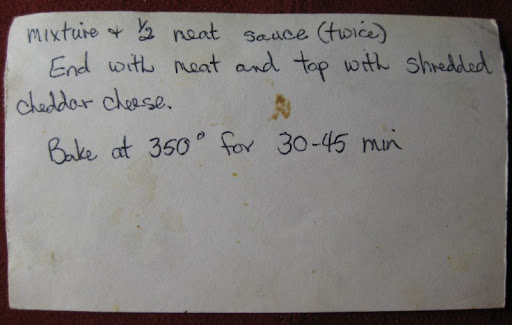 mixture + 1/2 meat sauce (twice)
End with meat and top with shredded
cheddar cheese.
Bake at 350° for 30-45 min